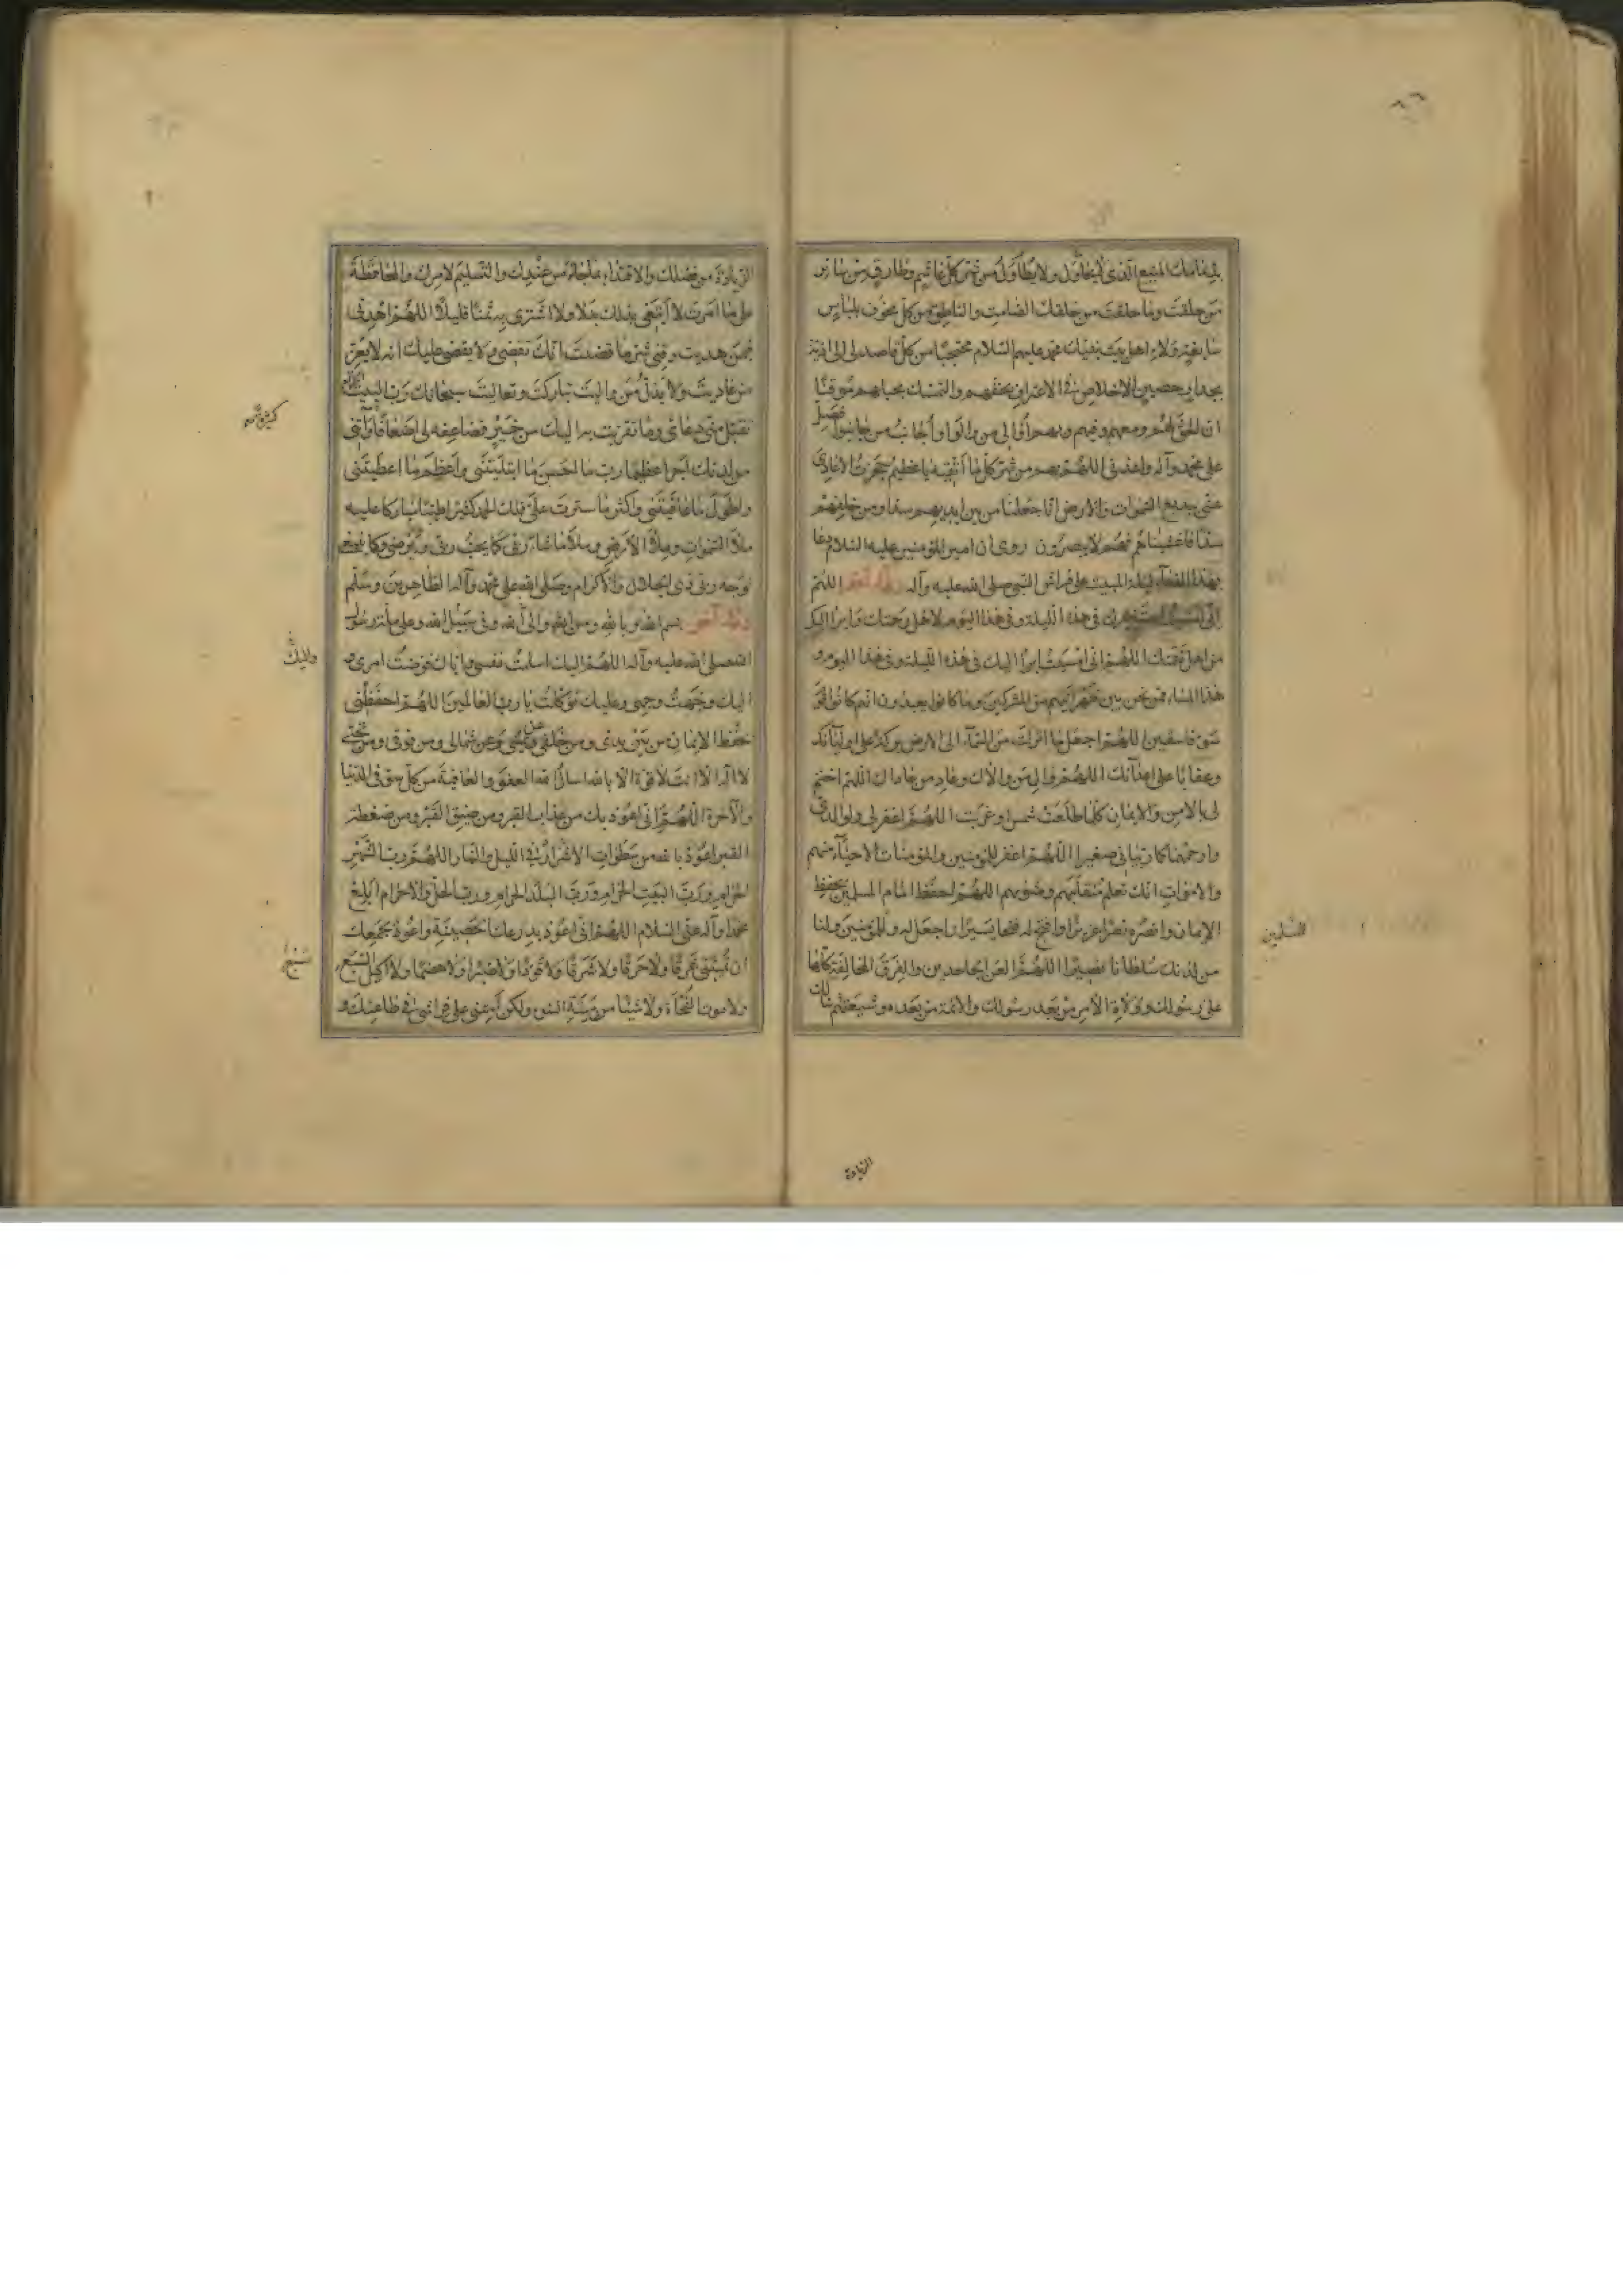 ٦٦
بذمامك المنيع الذي لا يحاول ولا يطاول من شر كل غاشم وطارق من سائر
من خلقت وما خلقت من خلقك الصامت والناطق من كل مخوف بلباس
سابغة ولاء اهل بيت نبيك محمد عليهم السلام محتجبا من كل قاصد لي الى اذية
بجدار حصين الاخلاص في الاعتراف بحقهم والتمسك بحبلهم موقنا
ان الحق لهم ومعهم وفيهم وبهم اوالي من والوا واجانب من جانبوا فصل
على محمد وآله واعذني اللهم بهم من شر كل ما اتقيه يا عظيم حجزت الاعادي
عني ببديع السموات والارض انا جعلنا من بين ايديهم سدا ومن خلفهم
سدا فاغشيناهم فهم لا يبصرون روي ان امير المؤمنين عليه السلام دعا
بهذا الدعاء ليلة المبيت على فراش النبي صلى الله عليه وآله اللهم
اني في هذه الليلة وفي هذا اليوم لاهل رحمتك وابرأ اليك
من اهل لعنتك اللهم اني امسيت ابرأ اليك في هذه الليلة وفي هذا اليوم و
هذا المساء ممن نحن بين ظهرانيهم من المشركين وما كانوا يعبدون انهم كانوا قوم
سوء فاسقين اللهم اجعل ما انزلت من السماء الى الارض بركة على اوليائك
وعقابا على اعدائك اللهم وال من والاك وعاد من عاداك اللهم اختم
لي بالامن والايمان كلما طلعت شمس او غربت اللهم اغفر لي ولوالدي
وارحمهما كما ربياني صغيرا اللهم اغفر للمؤمنين والمؤمنات الاحياء منهم
والاموات انك تعلم متقلبهم ومثويهم اللهم احفظ امام المسلمين بحفظ
الايمان وانصره نصرا عزيزا وافتح له فتحا يسيرا واجعل له وللمؤمنين ولنا
للمسلمين
من لدنك سلطانا نصيرا اللهم العن الجاحدين والفرق المخالفة كلها
على رسولك وولاة الامر من بعد رسولك والائمة من بعده وشيعتهم
الزيادة
الزيادة من فضلك والاقتداء من عندك والتسليم لامرك والمحافظة
على ما امرت لا ابتغي بذلك بدلا ولا اشتري به ثمنا قليلا اللهم اهدني
فيمن هديت وقني شر ما قضيت انك تقضي ولا يقضى عليك انه لا يعز
من عاديت ولا يذل من واليت تباركت وتعاليت سبحانك رب البيت الحرام
تقبل مني دعائي وما تقربت به اليك من خير فضاعفه لي اضعافا وآتني
كثيرة
من لدنك اجرا عظيما رب ما احسن ما ابتليتني واعظم ما اعطيتني
واطول ما عافيتني واكثر ما سترت علي فلك الحمد كثيرا طيبا مباركا عليه
ملأ السموات وملأ الارض وملأ ما شاء ربي كما يحب ربي ويرضى وكما ينبغي
لوجه ربي ذي الجلال والاكرام وصلى الله على محمد وآله الطاهرين وسلم
دعاء آخر بسم الله وبالله ومن الله والى الله وفي سبيل الله وعلى ملة رسول
الله صلى الله عليه وآله اللهم اليك اسلمت نفسي واليك فوضت امري و
واليك
اليك وجهت وجهي وعليك توكلت يا رب العالمين اللهم احفظني
بحفظ الايمان من بين يدي ومن خلفي وعن يميني وعن شمالي ومن فوقي ومن تحتي
لا اله الا انت لا قوة الا بالله اسأل الله العفو والعافية من كل سوء في الدنيا
والآخرة اللهم اني اعوذ بك من عذاب القبر ومن ضيق القبر ومن ضغطة
القبر اعوذ بالله من سطوات الاشرار في الليل والنهار اللهم رب الشهر
الحرام ورب البيت الحرام ورب البلد الحرام ورب الحل والاحرام ابلغ
محمدا وآله عني السلام اللهم اني اعوذ بدرعك الحصينة واعوذ بجمعك
ان تميتني غرقا ولا حرقا ولا شرقا ولا قودا ولا صبرا ولا هضما ولا اكيل السبع
سبع
ولا موت الفجأة ولا شيئا من ميتة السوء ولكن امتني على فراشي في طاعتك و